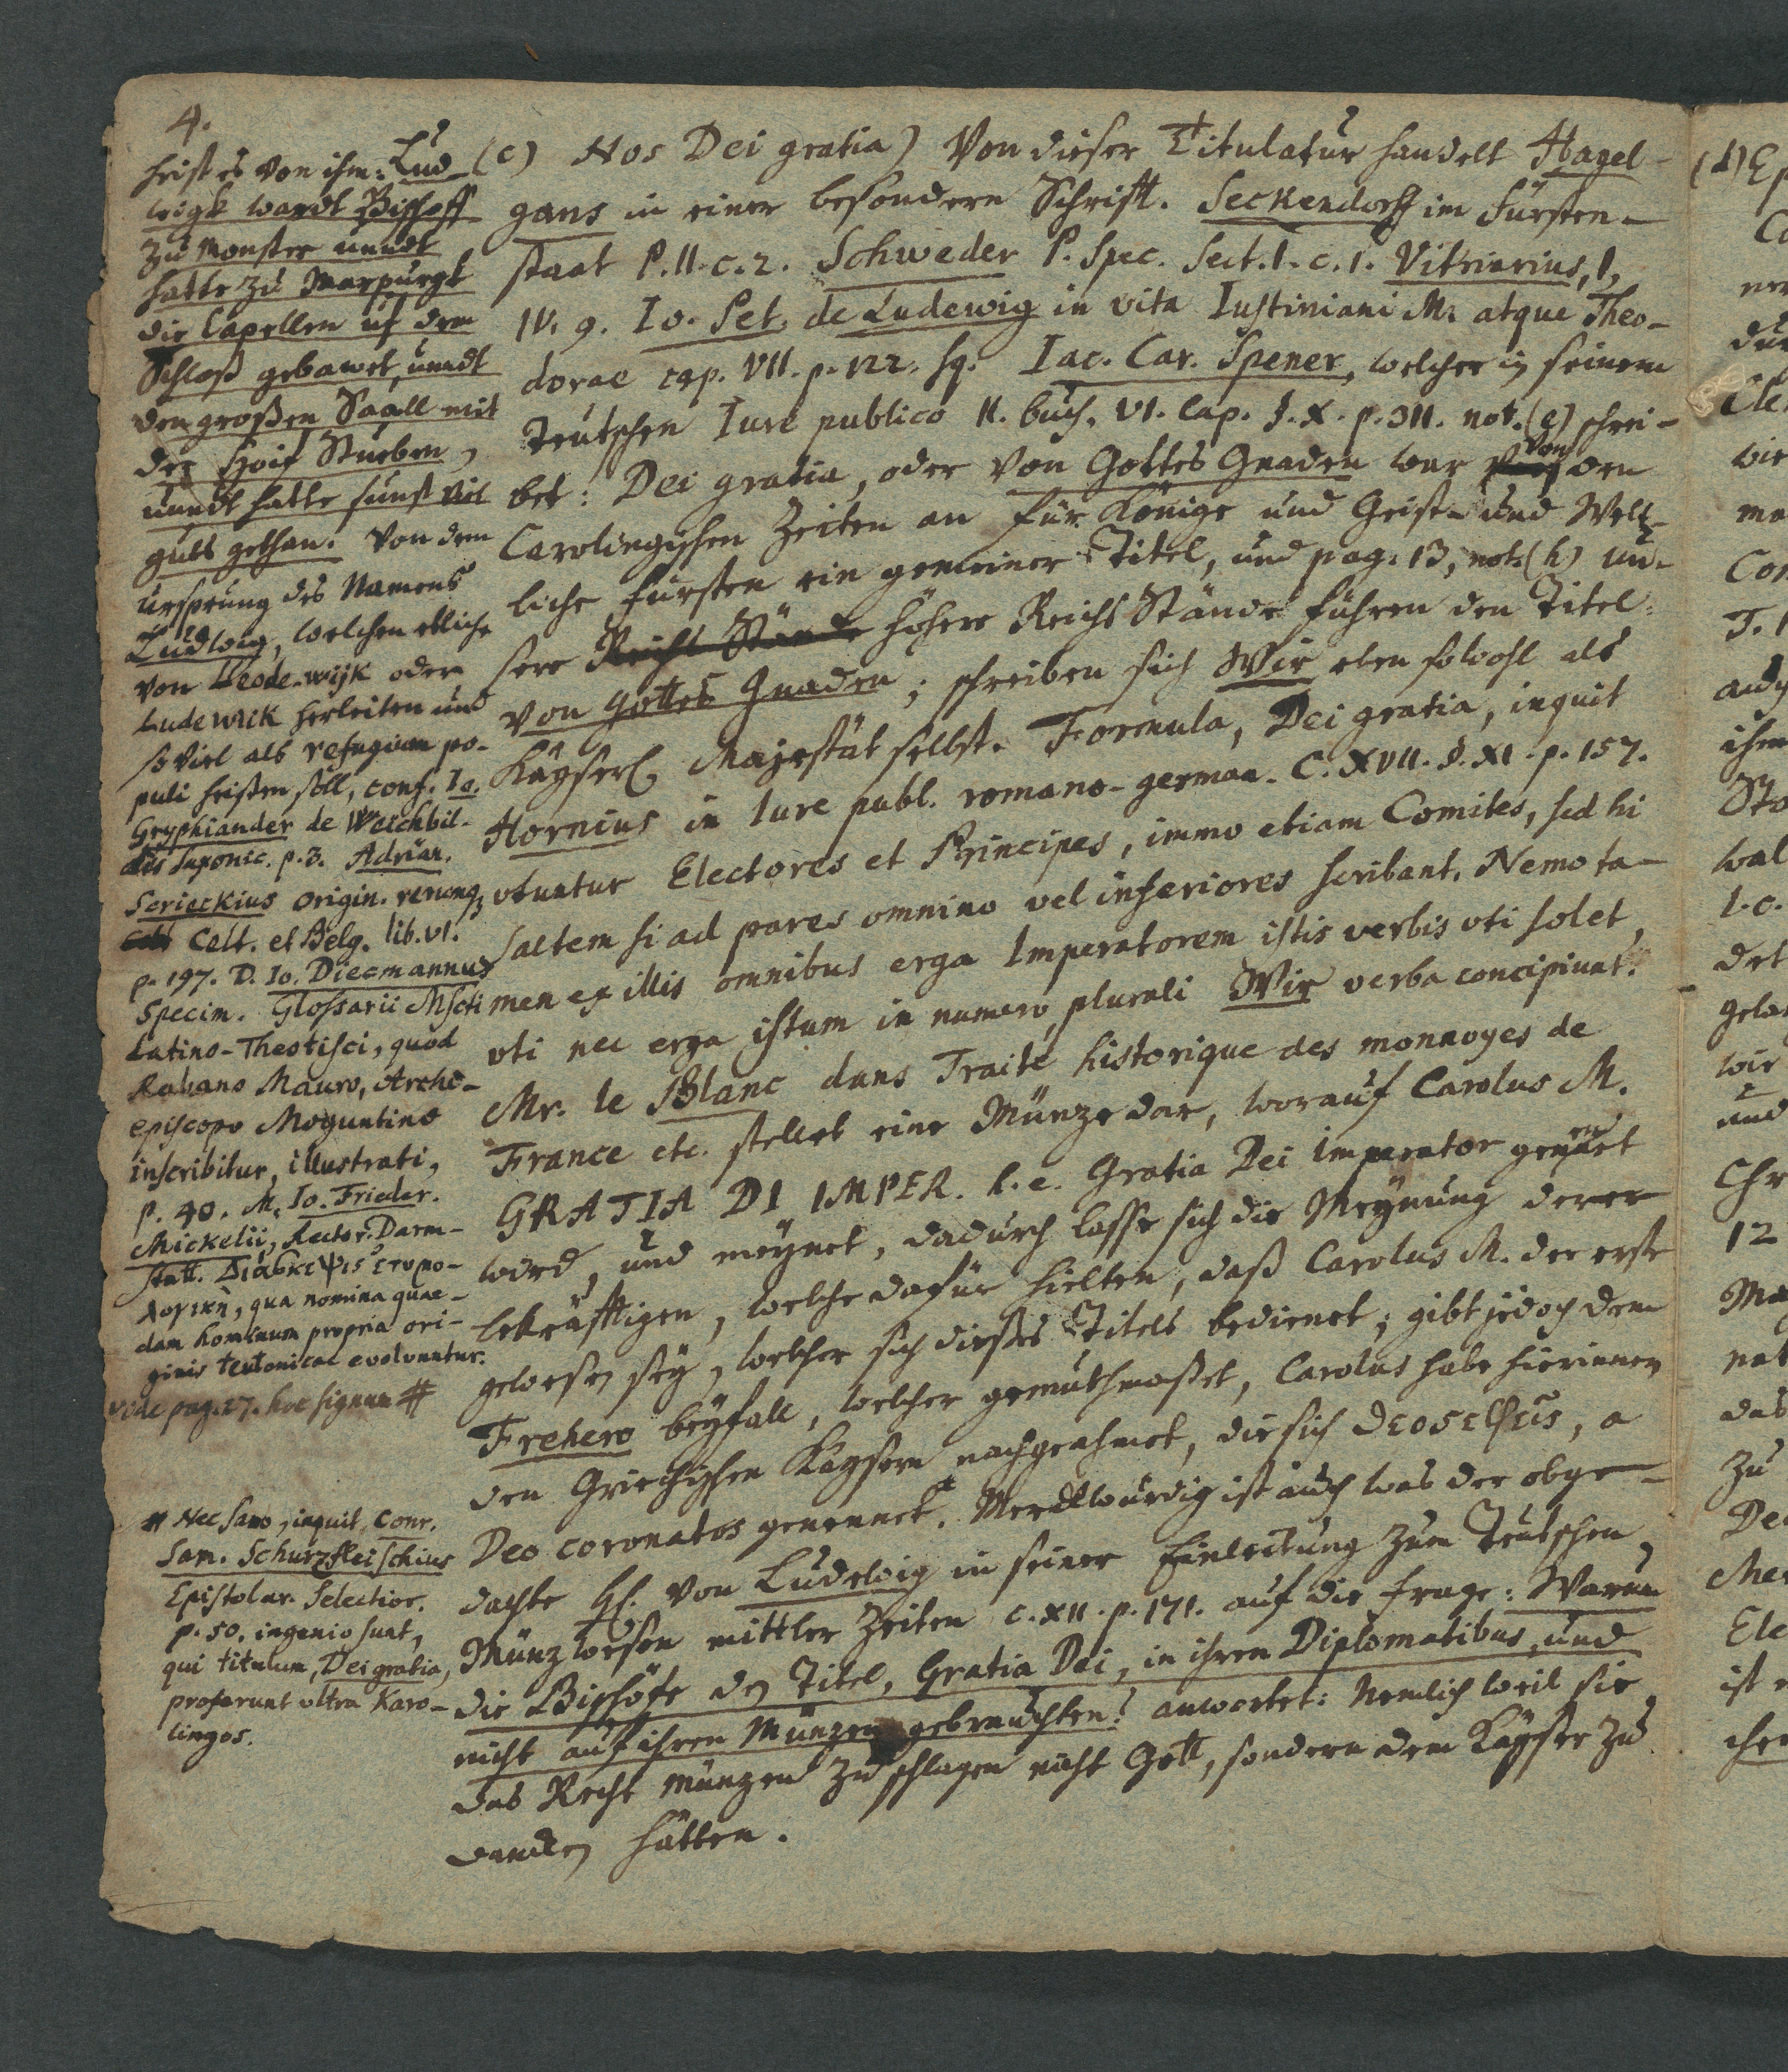 4.
heist es von ihm: Lud-
wigk wardt Bischoff
zu Monster unndt
hatte zu Marpurgk
die Capellen uf dem
Schloß gebawet unndt
den großen Saall mit
der Hoif Stueben,
unndt hatte sunst viel
guts gethan. Von dem
ursprung des Namens
Ludwig, welchen etliche
von Leode-wijk oder
Ludewick herleiten und
so viel als refugium po-
puli heißen soll, conf. Io.
Gryphiander de Weichbil-
dis Saxonic. p. 3. Adrian.
Scrieckius origin. rerumq3
Celt. et Belg. lib. VI.
p. 197. D. Io. Diecmannus
Specim. Glossarii Mscti
Latino-Theotisci, quod
Rabano Mauro, Archi-
episcopo Moguntino
inscribitur, illustrati,
p. 40. M. Io. Frieder.
Mickelii, Rector. Darm-
statt. Διάσκεψις ετυμο-
λογικὴ, qua nomina quae-
dam hominum propria ori-
ginis teutonicae evolvuntur.
vide pag. 27. hoc signum #
# Nec sano, inquit, Conr.
Sam. Schurzfleischius
Epistolar. Selectior.
p. 50. ingenio sunt,
qui titulum, Dei gratia,
proferunt ultra Karo-
lingos.
(c) Nos Dei gratia) Von dieser Titulatur handelt Hagel-
gans in einer besondern Schrifft. Seckendorff im Fürsten-
staat P. II. c. 2. Schweder P. Spec. Sect. I. c. 1. Vitriarius, I,
IV. 9. Io. Pet. de Ludewig in vita Iustiniani M. atque Theo-
dorae cap. VII. p. 122. sq. Iac. Car. Spener, welcher in seinem
Teutschen Iure publico II. buch. VI. Cap. §. X. p. 311. not. (e) schrei-
bet: Dei gratia, oder von Gottes Gnaden war von den
Carolingischen Zeiten an für Könige und Geist- und Welt-
liche Fürsten ein gemeiner Titel, und pag. 13, not. (h) un-
sere Reichs Stände höhere Reichs Stände führen den Titel:
von Gottes Gnaden; schreiben sich Wir eben sowohl als
Käyserl. Majestät selbst. Formula, Dei gratia, inquit
Hornius in Iure publ. romano-german. C. XVII. §. XI. p. 157.
utuntur Electores et Principes, immo etiam Comites, sed hi
saltem si ad pares omnino vel inferiores scribant. Nemo ta-
men ex illis omnibus erga Imperatorem istis verbis uti solet,
uti nec erga istum in numero plurali Wir verba concipiunt.
Mr. le Blanc dans Traité historique des monnoyes de
France etc. stellet eine Münze dar, worauf Carolus M.
GRATIA DI IMPER. h. e. Gratia Dei imperator genennet
wird, und meynet, dadurch lasse sich die Meynung derer
bekräfftigen, welche dafür hielten, daß Carolus M. der erste
gewesen sey, welcher sich dieses Titels bedienet; gibt jedoch dem
Frehero beyfall, welcher gemuthmaßet, Carolus habe hierinnen
den Griechischen Käysern nachgeahmet, die sich θεοςεφεις, a
Deo coronatos genennet. Merckwürdig ist auch was der obge-
dachte H. von Ludewig in seiner Einleitung zum Teutschen
Münzwesen mittler Zeiten c. XII. p. 171. auf die Frage: Warum
die Bischöfe den Titel, Gratia Dei, in ihren Diplomatibus, und
nicht auf ihren Münzen gebrauchten? antwortet: Nemlich weil sie
das Recht Münzen zu schlagen nicht Gott, sondern dem Käyser zu
dancken hätten.